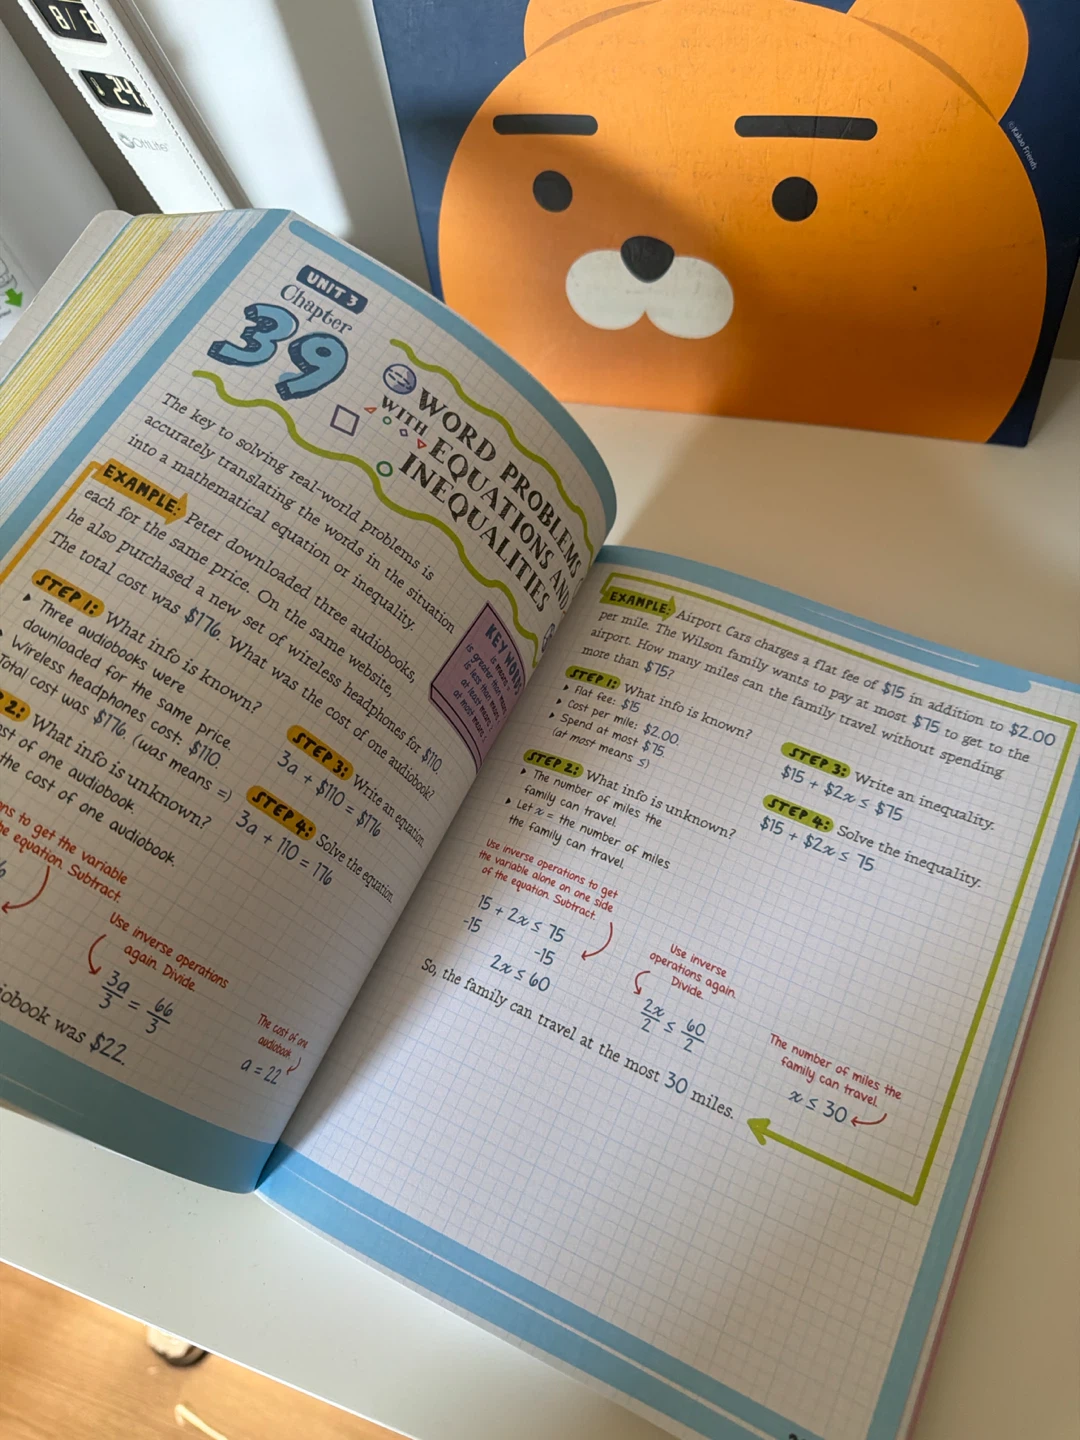 8/6
24
UNIT 3
Chapter
39
WORD PROBLEMS
WITH EQUATIONS AND
INEQUALITIES
The key to solving real-world problems is
accurately translating the words in the situation
into a mathematical equation or inequality.
EXAMPLE: Peter downloaded three audiobooks,
each for the same price. On the same website,
he also purchased a new set of wireless headphones for $110.
The total cost was $176. What was the cost of one audiobook?
KEY WORDS
STEP 1: What info is known?
Three audiobooks were
downloaded for the same price.
Wireless headphones cost: $110.
Total cost was $176. (was means =)
2: What info is unknown?
of one audiobook.
the cost of one audiobook.
STEP 3: Write an equation.
3a + $110 = $176
STEP 4: Solve the equation.
3a + 110 = 176
to get the variable
equation. Subtract.
Use inverse operations
again. Divide.
3a/3 = 66/3
The cost of one
audiobook
a = 22
was $22.
EXAMPLE: Airport Cars charges a flat fee of $15 in addition to $2.00
per mile. The Wilson family wants to pay at most $75 to get to the
airport. How many miles can the family travel without spending
more than $75?
STEP 1: What info is known?
Flat fee: $15
Cost per mile: $2.00.
Spend at most $75.
(at most means ≤)
STEP 2: What info is unknown?
The number of miles the
family can travel.
Let x = the number of miles
the family can travel.
STEP 3: Write an inequality.
$15 + $2x ≤ $75
STEP 4: Solve the inequality.
$15 + $2x ≤ 75
Use inverse operations to get
the variable alone on one side
of the equation. Subtract.
15 + 2x ≤ 75
-15 -15
2x ≤ 60
Use inverse
operations again.
Divide.
2x/2 ≤ 60/2
The number of miles the
family can travel.
x ≤ 30
So, the family can travel at the most 30 miles.
© Kakao Friends